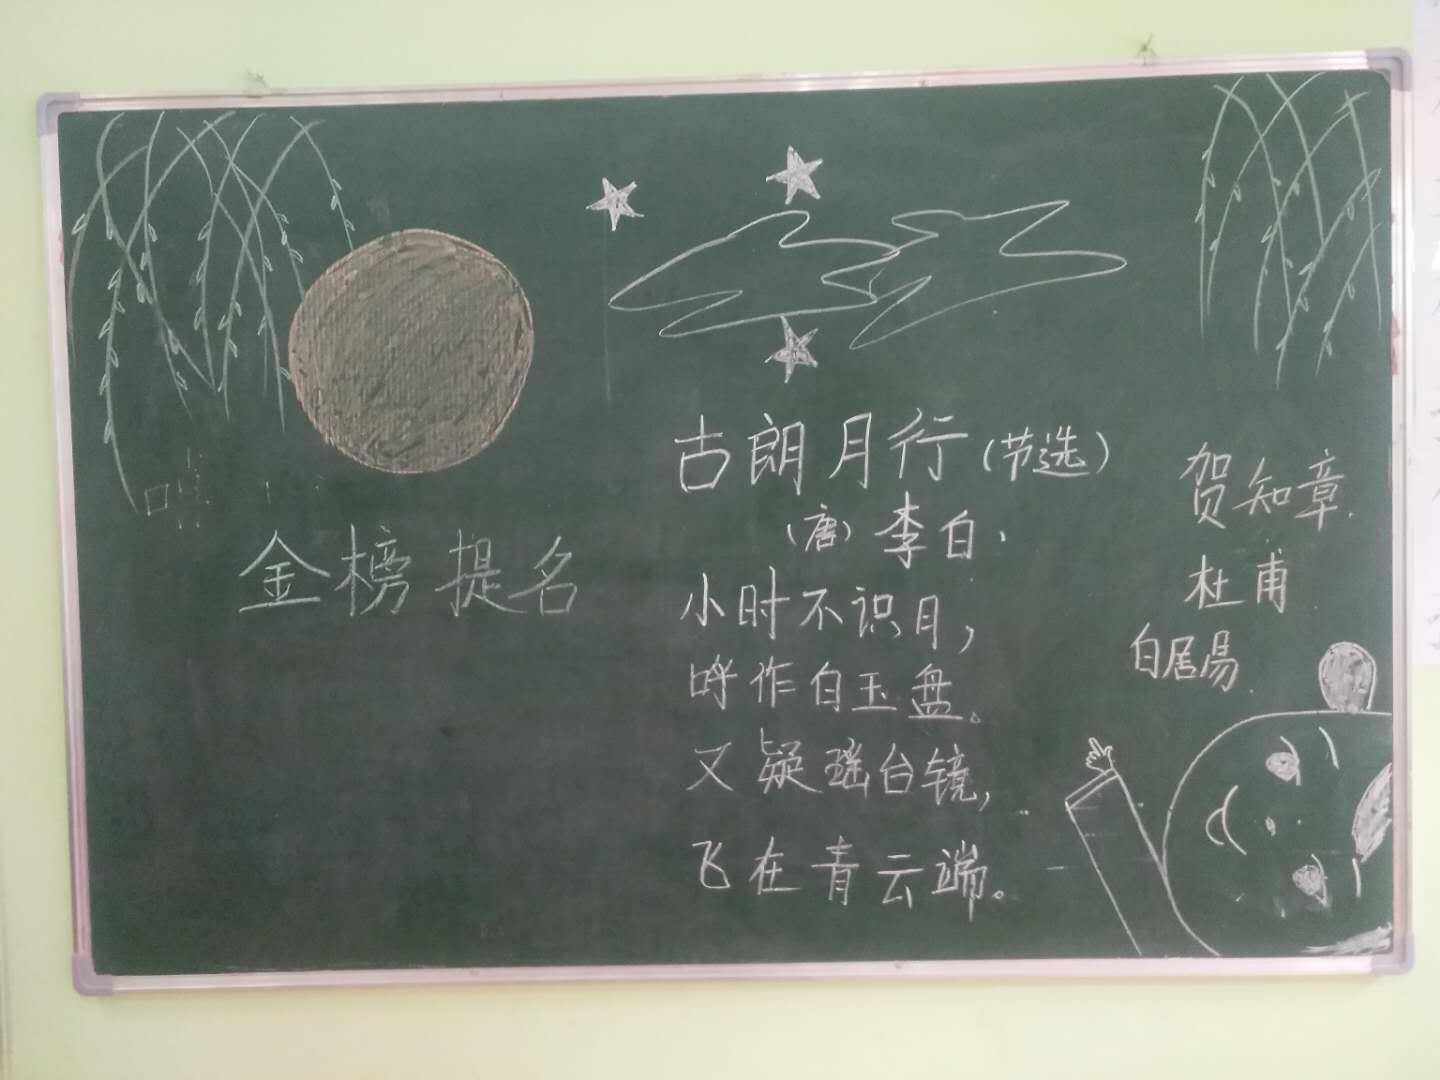 金榜提名
古朗月行(节选)
(唐)李白.
小时不识月,
呼作白玉盘。
又疑瑶台镜,
飞在青云端。
贺知章.
杜甫
白居易.